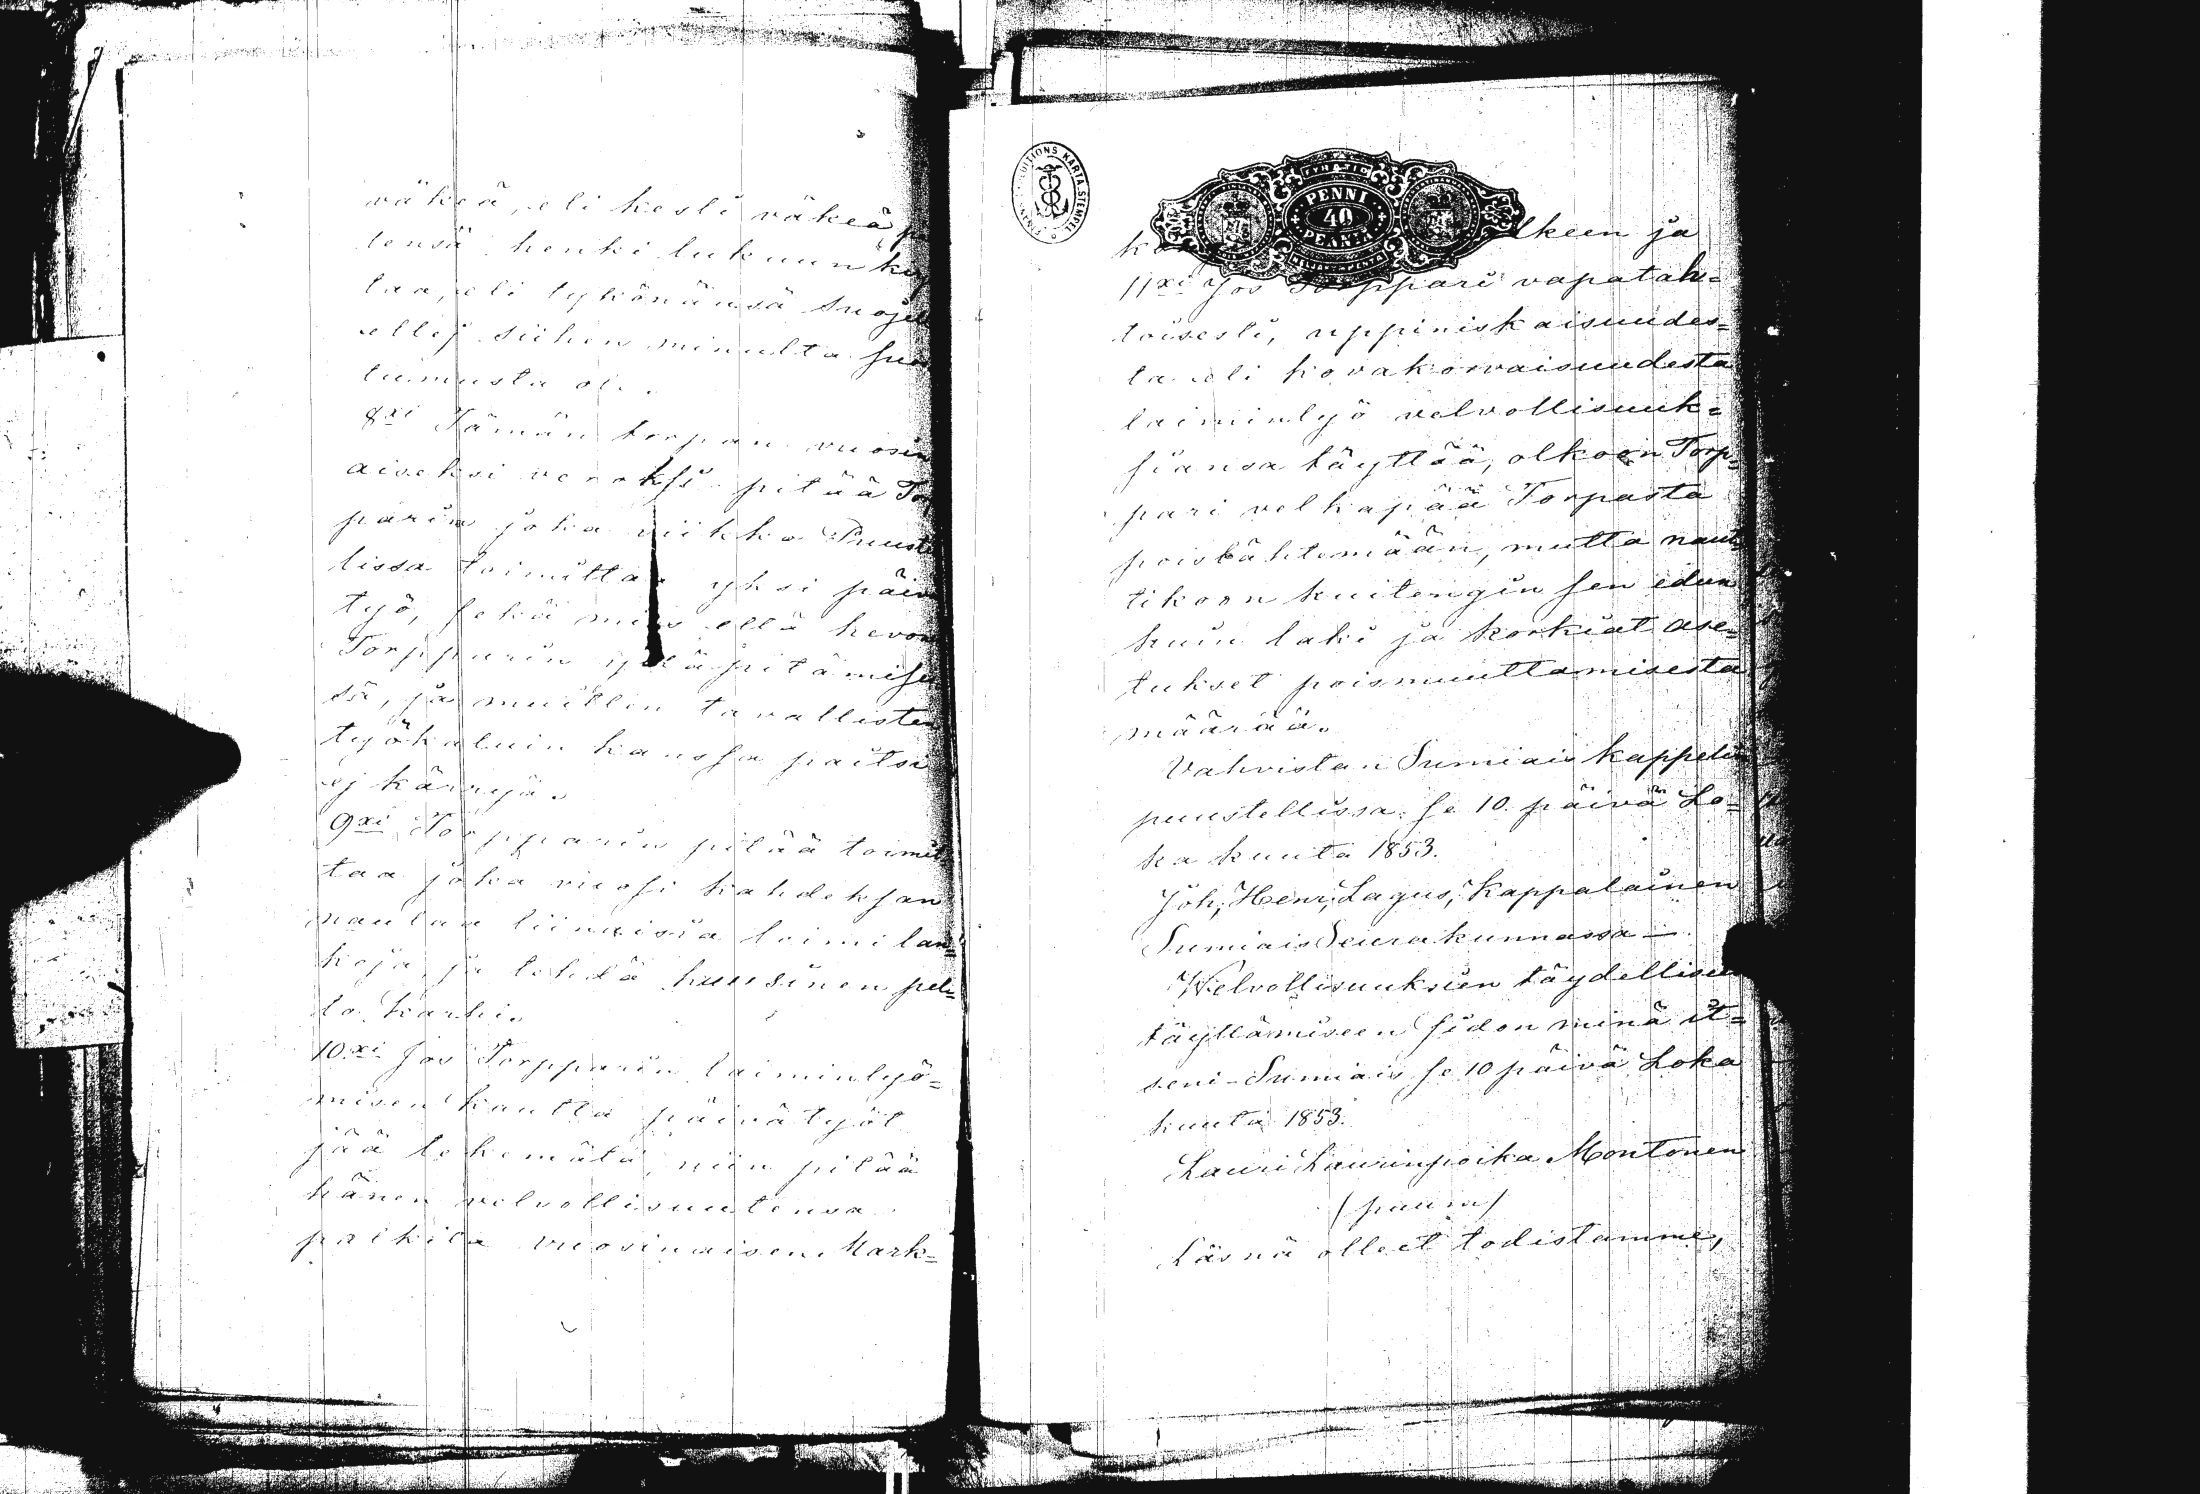 väkeä, eli kesti väkeä
tensä henki lukuun
taa, eli tykönänsä suojel
ellej siihen minulta suo
tumusta ole.
8xi Tämän torpan vuosin
aiseksi veroksi pitää Tor
parin joka viikko Puust
lissa toimittaa yhsi päiv
työ, sekä mies että hevon
Torpparin ylöspitämise
sä, ja muitten tavallisten
työkaluin kanssa paitsi
ej kärryjä.
9xi Torpparin pitää toimit
taa joka vuosi kahdeksan
naulaa liinaisia toimi lan=
koja, ja tehdä kuusinen pel=
to karhi.
10xi Jos Torpparin laiminlyö=
misen kautta päivätyöt
jää tekemätä, niin pitää
hänen velvollisuutensa
paikita vuosinaisen Mark=
FINLANDS EXPEDITIONS KARTA.STEMPEL
PENNI
40
PENNIÄ
lkeen ja
11xi Jos Torppari vapatah=
toisesti, uppiniskaisuudes=
ta eli kovakorvaisuudesta
laiminlyö velvollisuuk=
siansa täyttää, olkoon Torp=
pari velkapää Torpasta
poislähtemään, mutta naut=
tikoon kuitengin sen edun
kuin laki ja korkiat ase=
tukset poismuuttamisesta
määrää.
Vahvistan Sumiais kappelin
puustellissa se 10. päivä Lo=
ka kuuta 1853.
Joh; Henr; Lagus, Kappalainen
Sumiais Seurakunnassa —
Welvollisuuksien täydellisee
täyttämiseen sidon minä it=
seni – Sumiais se 10 päivä Loka
kuuta 1853.
Lauri Laurinpoika Montonen
(puum)
Läsnä olleet todistamme,